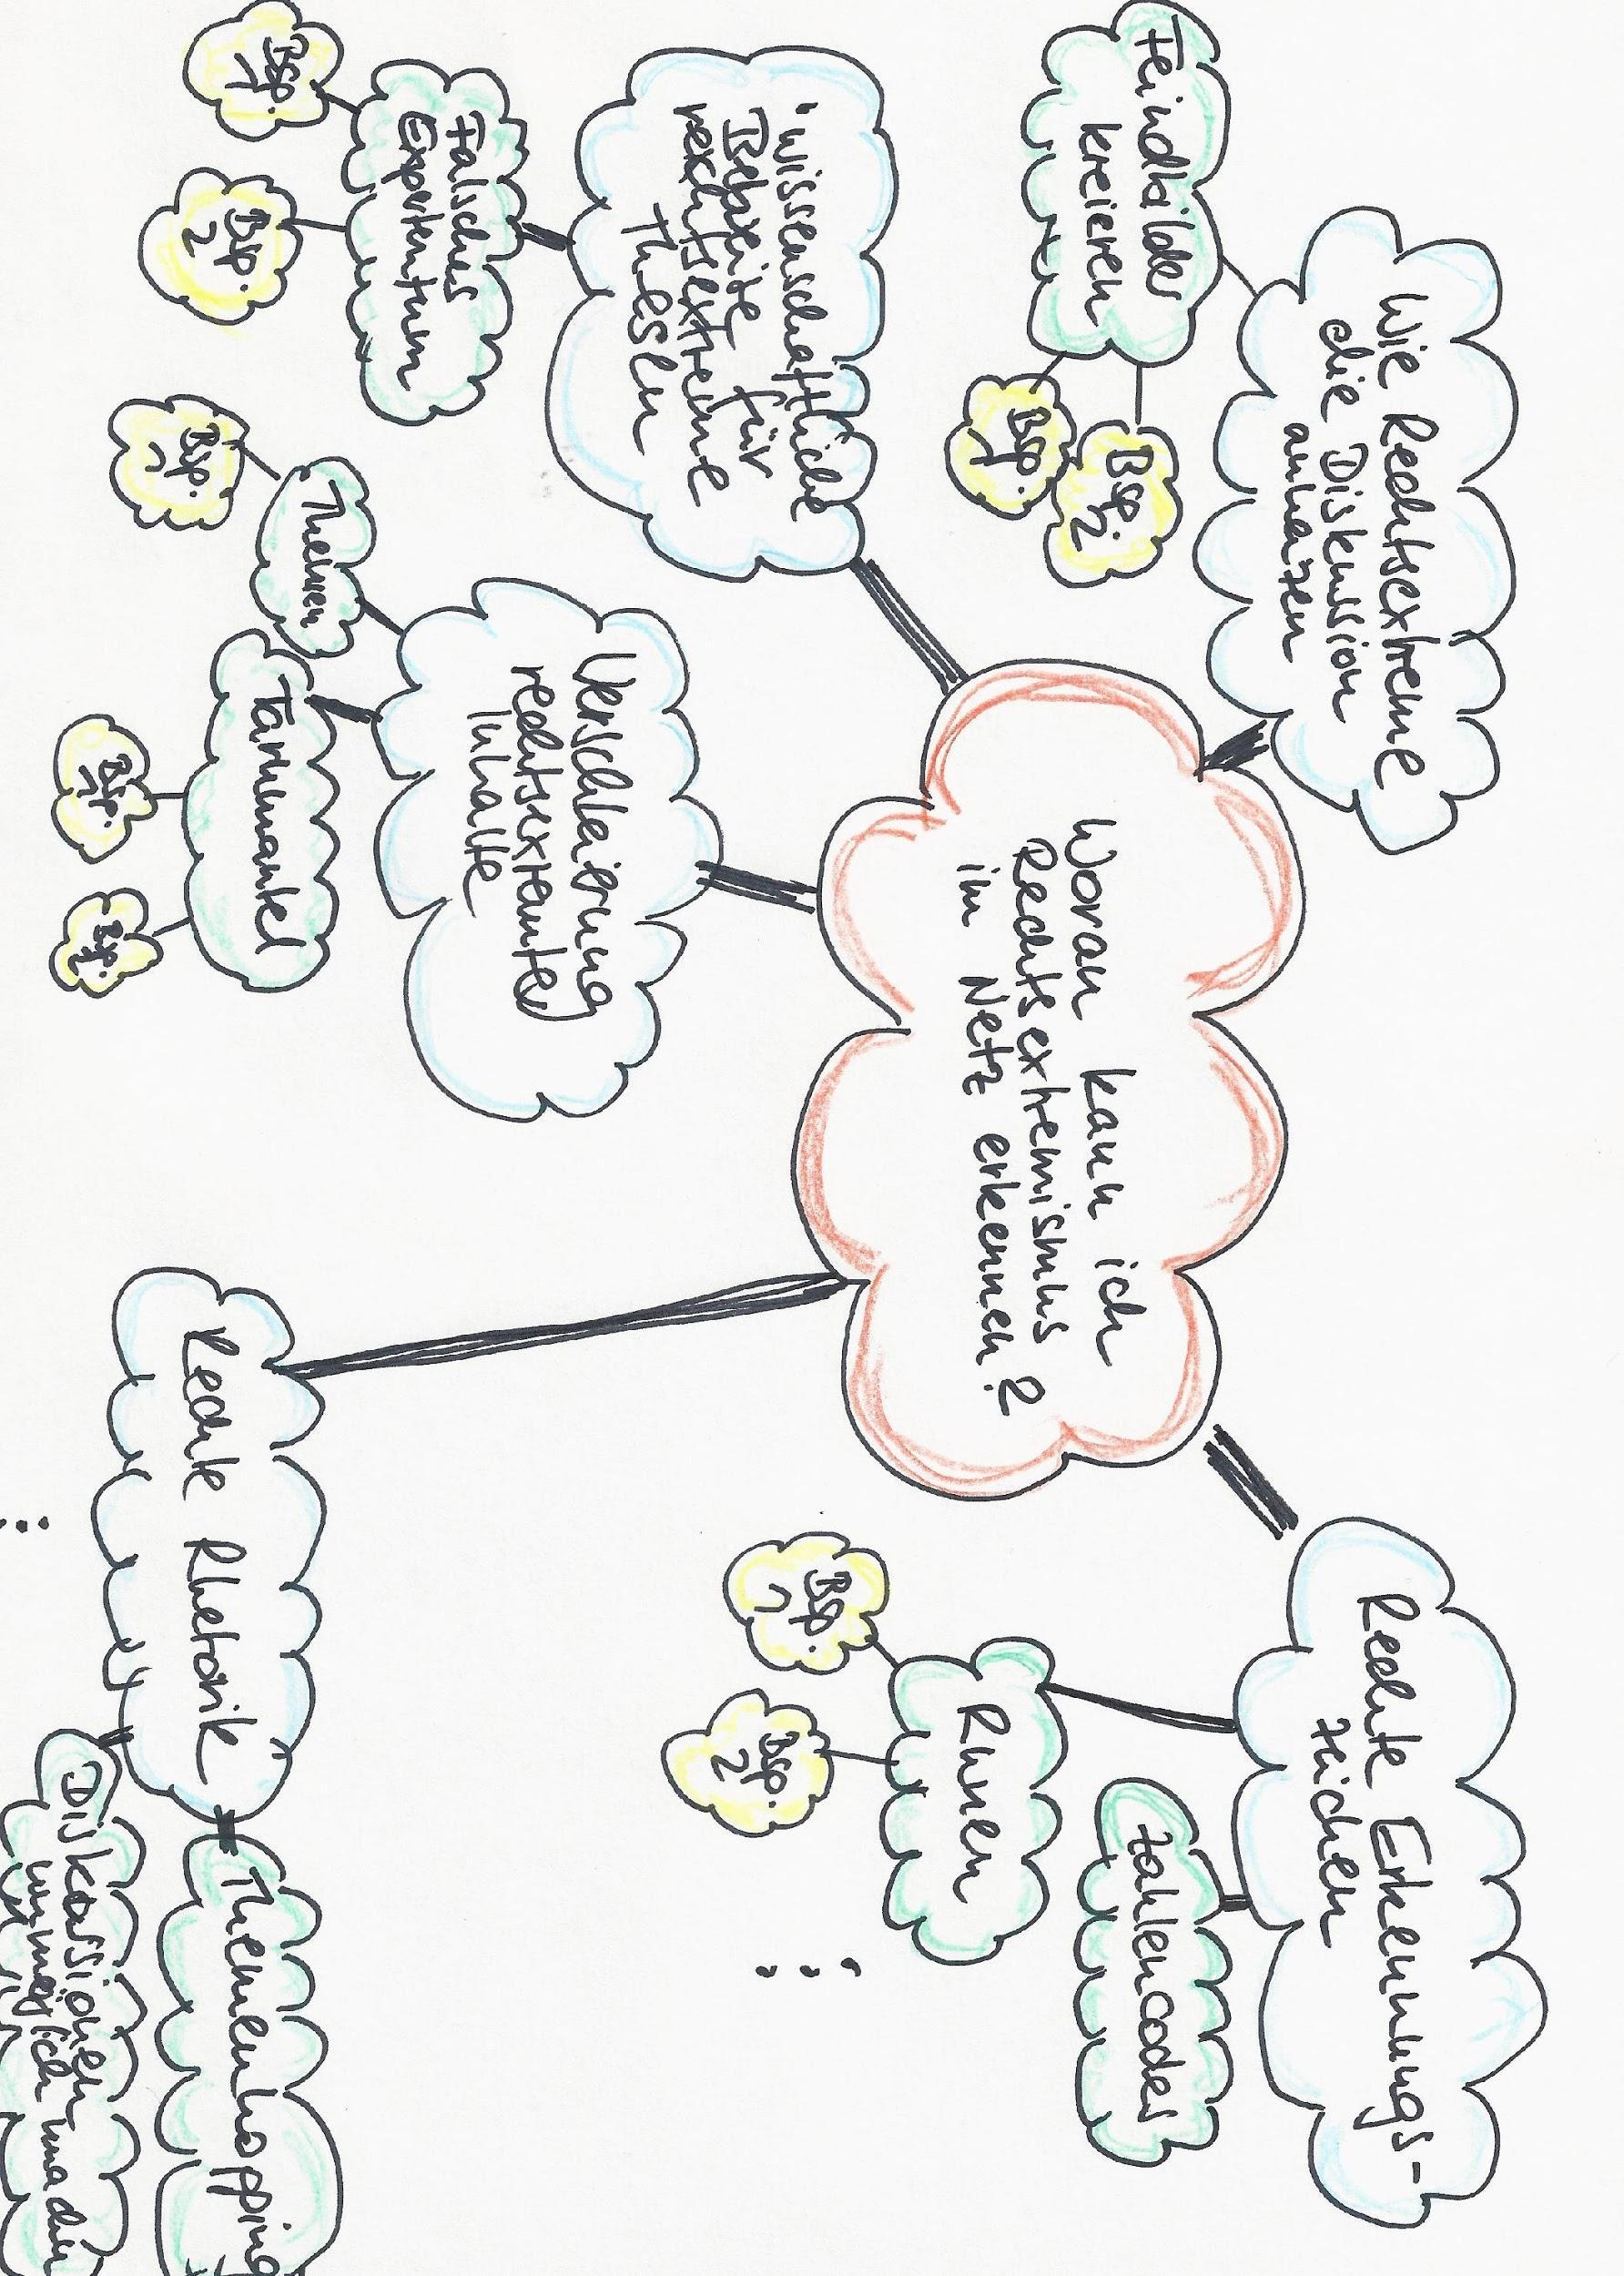 Woran kann ich
Rechtsextremismus
im Netz erkennen?
Wie Rechtsextreme
die Diskussion
anheizen
Feindbilder
kreieren
Bsp.
1
Bsp.
2
"Wissenschaftliche
Beweise für
rechtsextreme
Thesen
Falsches
Expertentum
Bsp.
1
Bsp.
2
Verschleierung
rechtsextremer
Inhalte
Themen
Bsp.
1
Tarnmantel
Bsp.
1
Bsp.
2
Rechte Erkennungs-
zeichen
Zahlencodes
Runen
Bsp.
1
Bsp.
2
...
Rechte Rhetorik
Themenhopping
Diskussionen
unmöglich machen
...